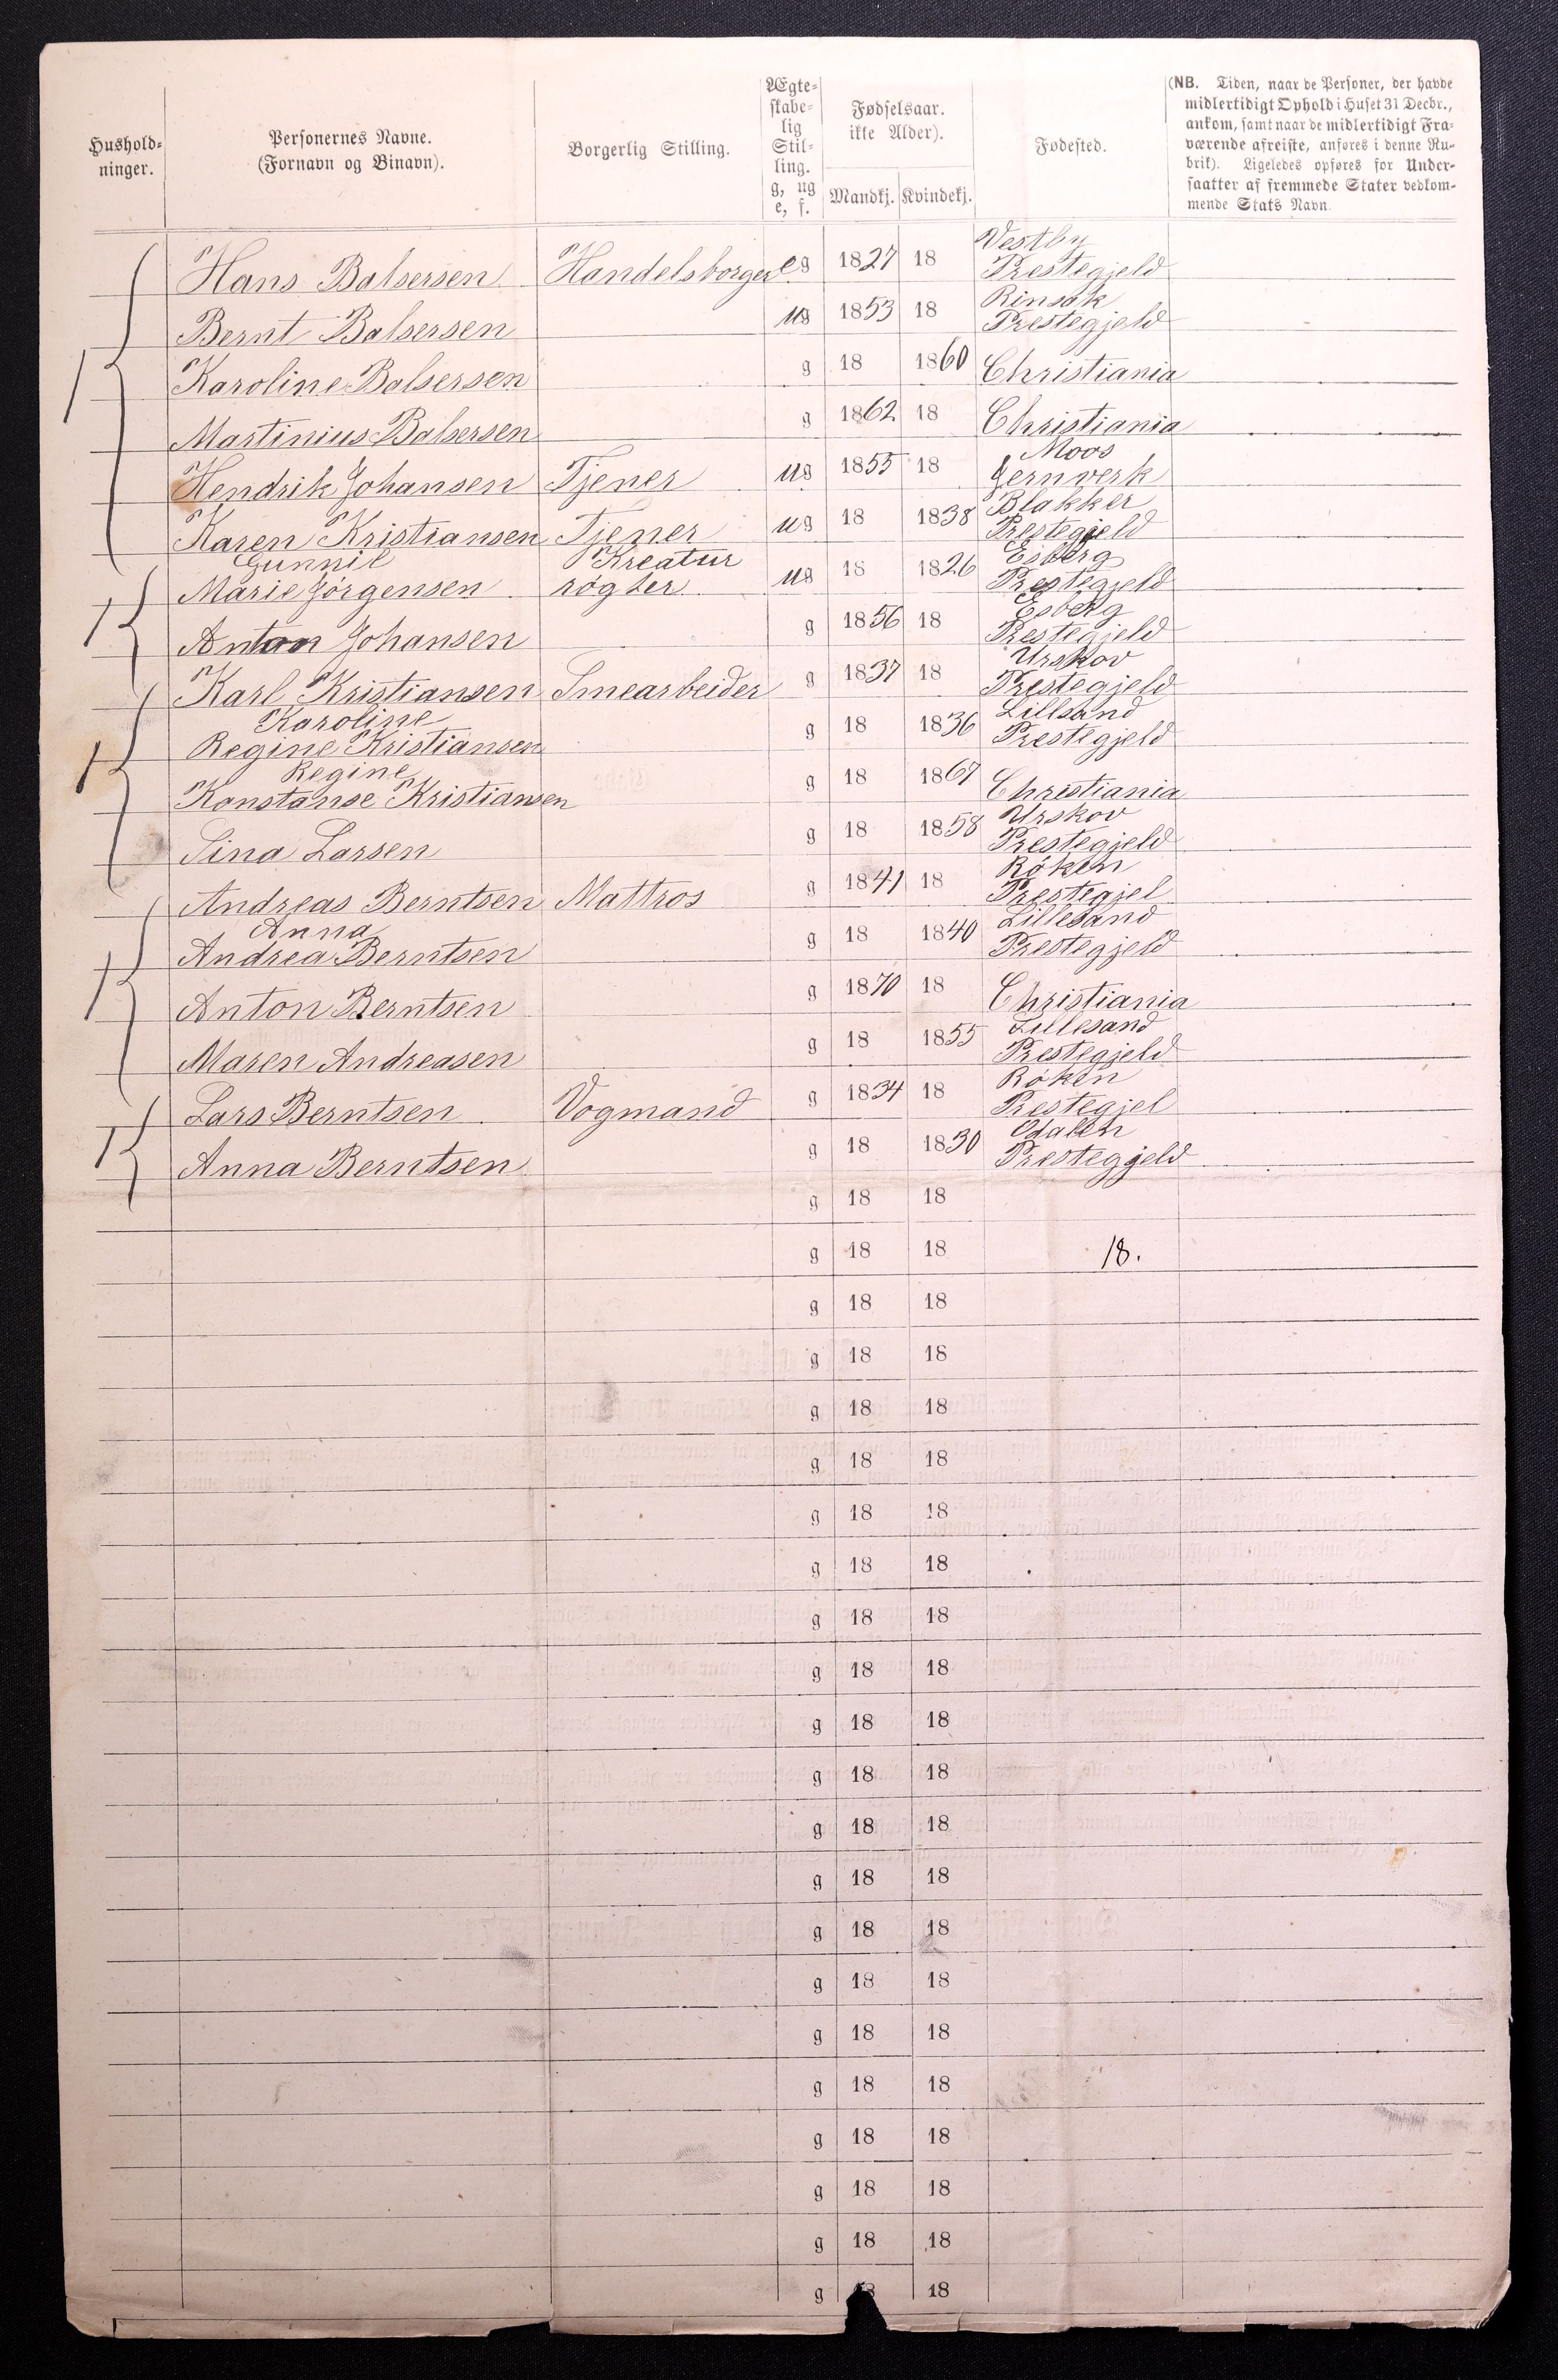 Hushold-
ninger.
Personernes Navne.
(Fornavn og Binavn).
Borgerlig Stilling.
Ægte-
skabe-
lig
Stil-
ling.
g, ug
e, f.
Fødselsaar.
ikke Alder).
Mandkj. Kvindekj.
Fødested.
(NB. Tiden, naar de Personer, der havde
midlertidigt Ophold i Huset 31 Decbr.,
ankom, samt naar de midlertidigt Fra-
værende afreiste, anføres i denne Ru-
brik). Ligeledes opføres for Under-
saatter af fremmede Stater vedkom-
mende Stats Navn.
Vestby
1 Hans Balsersen Handelsborger eg 1827 18 Prestegjeld
Rinsak
Bernt Balsersen ug 1853 18 Prestegjeld
Karoline Balsersen g 18 1860 Christiania
Martinius Balsersen g 1862 18 Christiania
Moos
Hendrik Johansen Tjener ug 1855 18 Jernverk
Blakker
Karen Kristiansen Tjener ug 18 1838 Prestegjeld
Gunnil Kreatur Eisberg
1 Marie Jörgensen rögter ug 18 1826 Prestegjeld
Esberg
Anton Johansen g 1856 18 Prestegjeld
Urskov
1 Karl Kristiansen Smearbeider g 1837 18 Prestegjeld
Karoline Lillsand
Regine Kristiansen g 18 1836 Prestegjeld
Regine
Konstanse Kristiansen g 18 1867 Christiania
Urskov
Sina Larsen g 18 1858 Prestegjeld
Röken
1 Andreas Berntsen Mattros g 1841 18 Prestegjel
Anna Lillesand
Andrea Berntsen g 18 1840 Prestegjeld
Anton Berntsen g 1870 18 Christiania
Lillesand
Maren Andreasen g 18 1855 Prestegjeld
Röken
1 Lars Berntsen Vogmand g 1834 18 Prestegjel
Odalen
Anna Berntsen g 18 1830 Prestegjeld
g 18 18
g 18 18 18.
g 18 18
g 18 18
g 18 18
g 18 18
g 18 18
g 18 18
g 18 18
g 18 18
g 18 18
g 18 18
g 18 18
g 18 18
g 18 18
g 18 18
g 18 18
g 18 18
g 18 18
g 18 18
g 18 18
g 18